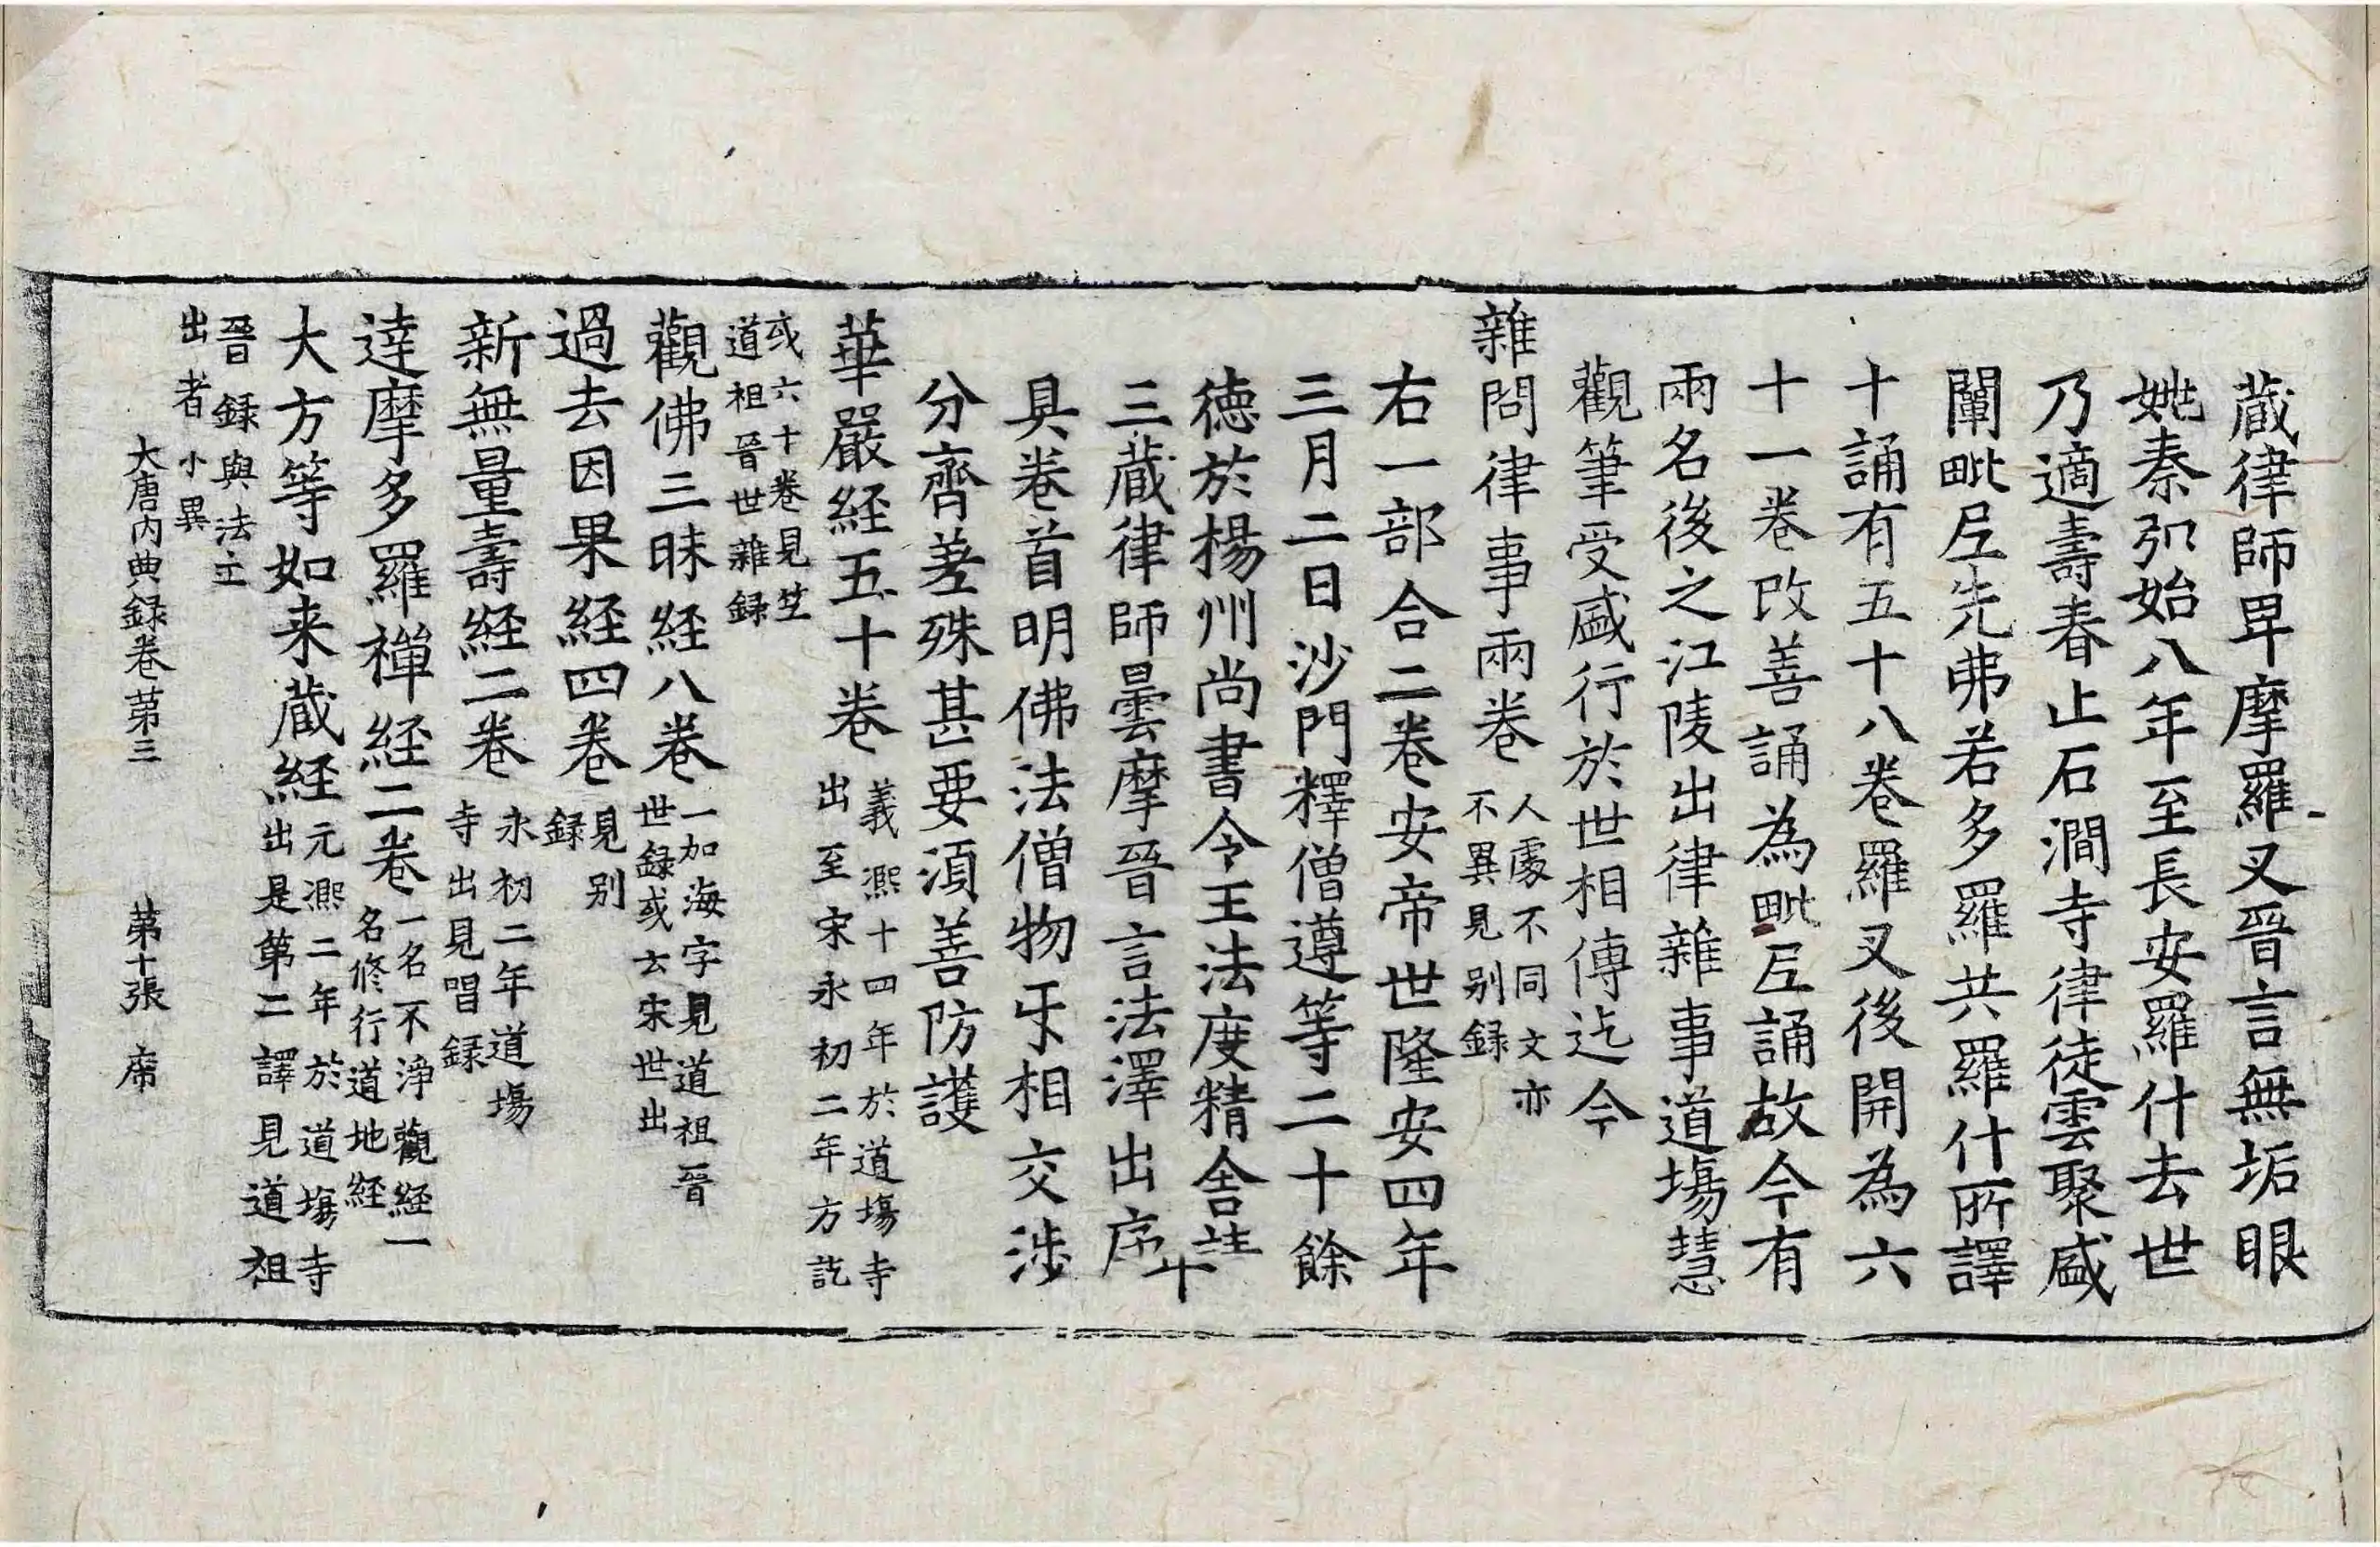 藏律師早摩羅叉晉言無垢眼
姚秦弘始八年至長安羅什去世
乃適壽春止石澗寺律徒雲聚盛
闡毗尼先弗若多羅共羅什所譯
十誦有五十八卷羅叉後開為六
十一卷改善誦為毗尼誦故今有
兩名後之江陵出律雜事道場慧
觀筆受盛行於世相傳迄今
雜問律事兩卷 人處不同文亦
不異見別録
右一部合二卷安帝世隆安四年
三月二日沙門釋僧遵等二十餘
德於楊州尚書令王法度精舍請
三藏律師曇摩晉言法澤出序卄
具卷首明佛法僧物牙相交涉
分齊差殊甚要湏善防護
華嚴経五十卷 義熈十四年於道場寺
出至宋永初二年方訖
或六十卷見竺
道祖晉世雜録
觀佛三昧経八卷 一加海字見道祖晉
世録或云宋世出
過去因果経四卷 見別
録
新無量壽経二卷 永初二年道場
寺出見唱録
達摩多羅禪経二卷 一名不淨觀経一
名修行道地経
大方等如来藏経 元熈二年於道場寺
出是第二譯見道祖
晉録與法立
出者小異
大唐内典録卷第三 第十張 席